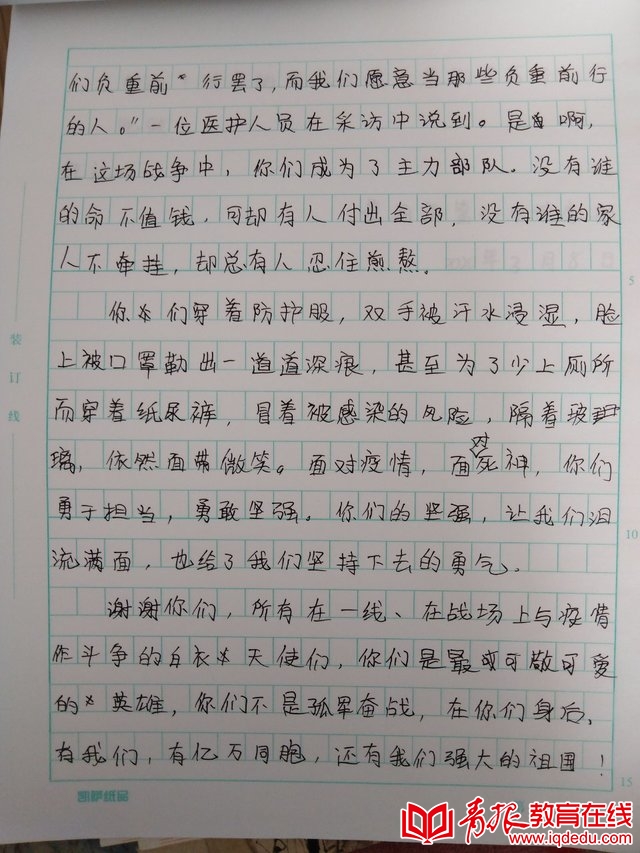 们负重前行罢了,而我们愿意当那些负重前行
的人。"一位医护人员在采访中说到。是啊,
在这场战争中,你们成为了主力部队。没有谁
的命不值钱,可却有人付出全部,没有谁的家
人不牵挂,却总有人忍住煎熬。
你们穿着防护服,双手被汗水浸湿,脸
上被口罩勒出一道道深痕,甚至为了少上厕所
而穿着纸尿裤,冒着被感染的风险,隔着玻
璃,依然面带微笑。面对疫情,面对死神,你们
勇于担当,勇敢坚强。你们的坚强,让我们泪
流满面,也给了我们坚持下去的勇气。
谢谢你们,所有在一线、在战场上与疫情
作斗争的白衣天使们,你们是最可敬可爱
的英雄,你们不是孤军奋战,在你们身后,
有我们,有亿万同胞,还有我们强大的祖国!
装
订
线
5
10
15
凯萨纸品
青报教育在线
www.iqdedu.com